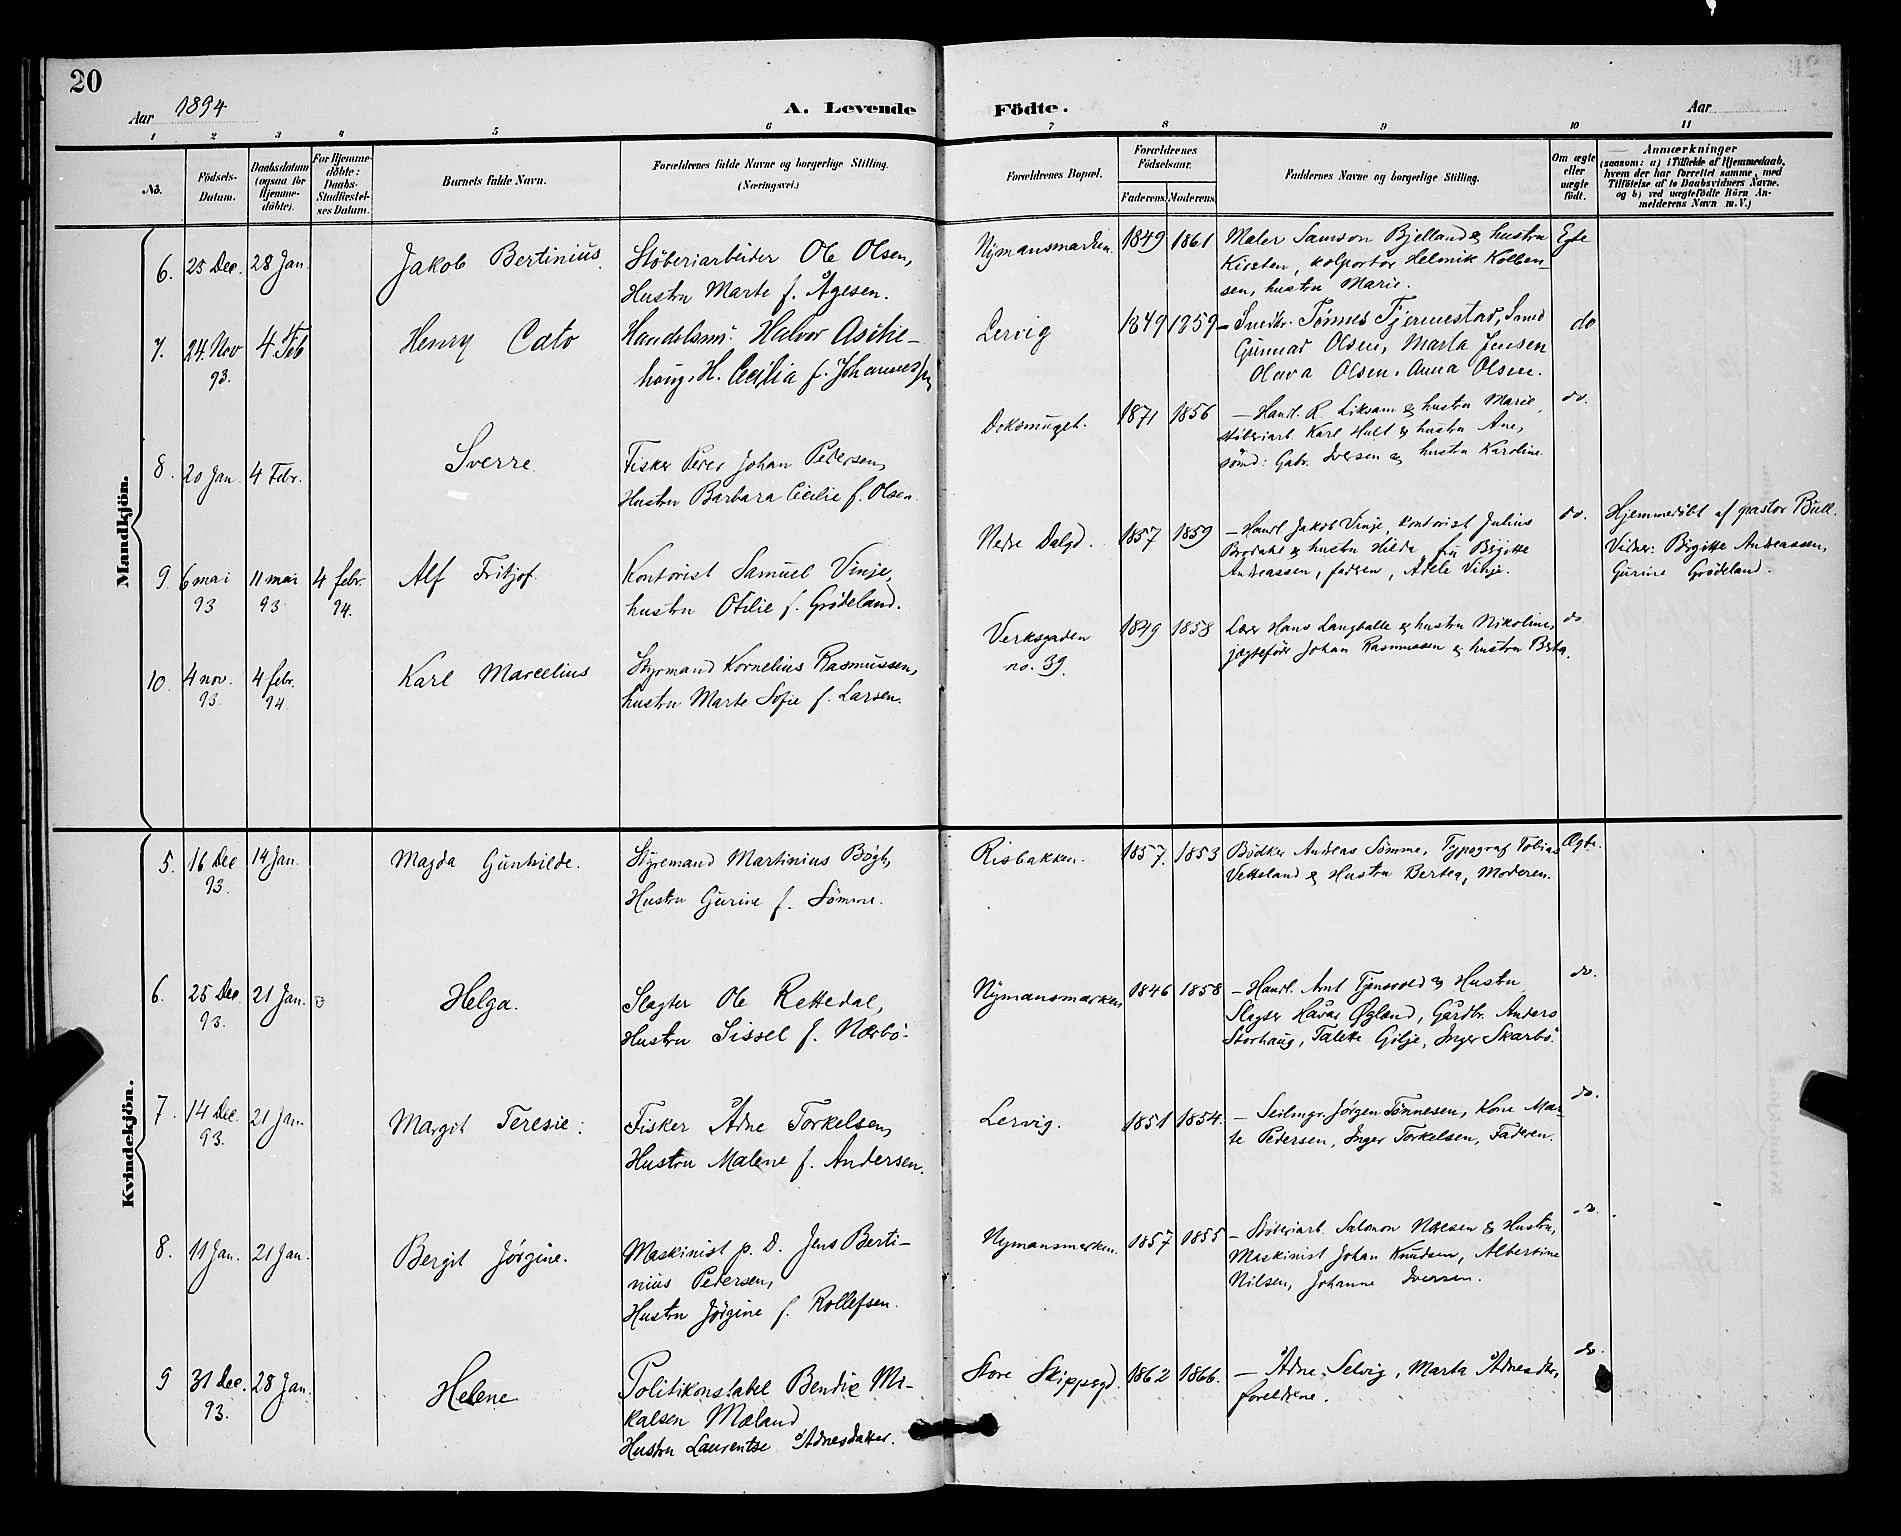 20
Aar 1894
A. Levende Födte.
Aar
1 2 3 4 5 6 7 8 9 10 11
No.
Födsels-
Datum.
Daabsdatum
(ogsaa for
Hjemme-
döbte).
For Hjemme-
döbte:
Daabs-
Stadfæstel-
ses Datum.
Barnets fulde Navn.
Forældrenes fulde Navne og borgerlige Stilling.
(Næringsvei.)
Forældrenes Bopæl.
Forældrenes
Födselsaar.
Faderens. Moderens.
Faddernes Navne og borgerlige Stilling.
Om ægte
eller
uægte
födt.
Anmærkninger
(saasom: a) i Tilfælde af Hjemmedaab,
hvem der har forrettet samme, med
Tilföielse af to Daabsvidners Navne,
og b) ved uægtefödte Börn An-
melderens Navn m. V.)
Mandkjön.
6. 25 Dec. 28 Jan. Jakob Bertinius.
Støberiarbeider Ole Olsen,
Hustru Marte f. Ågesen.
Nymansmarken. 1849 1861
Maler Samson Bjelland & hustru
Kirsten, kolportør Helmik Kolben-
sen, hustru Marie.
Egte
7. 24 Nov 93. 4 Feb Henry Cato
Handelsm. Halvor Aschehoug, H. Cecilia f. Johannessen
Lervig 1849 1859
– Snedkr. Tønnes Tjermestad, Smed
Gunnar Olsen, Marta Jensen
Olava Olsen. Anna Olsen.
do
8. 20 Jan. 4 Febr. Sverre.
Fisker Peter Johan Petersen,
Hustru Barbara Cecilie f. Olsen.
Doksmuget. 1871 1856
– Handl. R. Liksam & hustru Marie,
støberiarb. Karl Hult & hustru Ane,
sømd: Gabr. Iversen & hustru Karoline.
do.
9. 6 mai 93 11 mai 93 4 febr. 94. Alf Fritjof.
Kontorist Samuel Vinje,
hustru Otilie f. Grødeland.
Nedre Dalgd. 1857 1859
– Handl. Jakob Vinje, kontorist Julius
Brodahl & hustru Hilda, fru Birgitte
Andreassen, faderen, Adele Vinje.
do.
Hjemmedøbt af pastor Bull.
Vidner: Birgitte Andreassen,
Gurine Grødeland.
10. 4 nov. 93. 4 febr. 94 Karl Marcelius
Styrmand Kornelius Rasmussen,
hustru Marte Sofie f. Larsen.
Verksgaden
no. 39.
1849 1858
Lærer Hans Langballe & hustru Nikoline,
jægtefører Johan Rasmussen & hustru Berta.
do
Kvindekjön.
5. 16 Dec 93. 14 Jan. Magda Gunhilde.
Styremand Martinius Bögh,
Hustru Gurine f. Sömme.
Risbakken. 1857. 1853
Bödker Andreas Sömme, Typograf Tobias
Vetteland & Hustru Bertea, Moderen.
Ægte.
6. 25 Dec. 93. 21 Jan. Helga.
Slagter Ole Rettedal,
Hustru Sissel f. Nærbö.
Nymansmarken 1846 1858
– Handl. Arnt Tjensvold & Hustru
Slagter Håvar Øgland, Gårdbr. Anders
Storhaug, Talette Gilje, Inger Skarbö.
do.
7. 14 Dec 93. 21 Jan. Margit Teresie.
Fisker Ådne Torkelsen,
Hustru Malene f. Andersen.
Lervig. 1851 1854.
– Seilmgr. Jörgen Tönnesen, Kone Mar-
te Pedersen, Inger Torkelsen, Faderen.
do.
8. 11 Jan. 21 Jan. Bergit Jörgine.
Maskinist p. D. Jens Berti-
nius Pedersen,
Hustru Jörgine f. Rollefsen.
Nymansmarken. 1857 1855
– Støberiarb. Salomon Næsen & Hustru,
Maskinist Johan Knudsen, Albertine
Nilsen, Johanne Iversen.
do.
9 31 Dec. 93. 28 Jan. Helene
Politikonstabel Bendix Mi-
kalsen Mæland
Hustru Laurentse Ådnesdatter.
Store Skippergd. 1862 1866.
– Ådne Selvig, Marta Ådnesdtr,
foreldrene.
do.